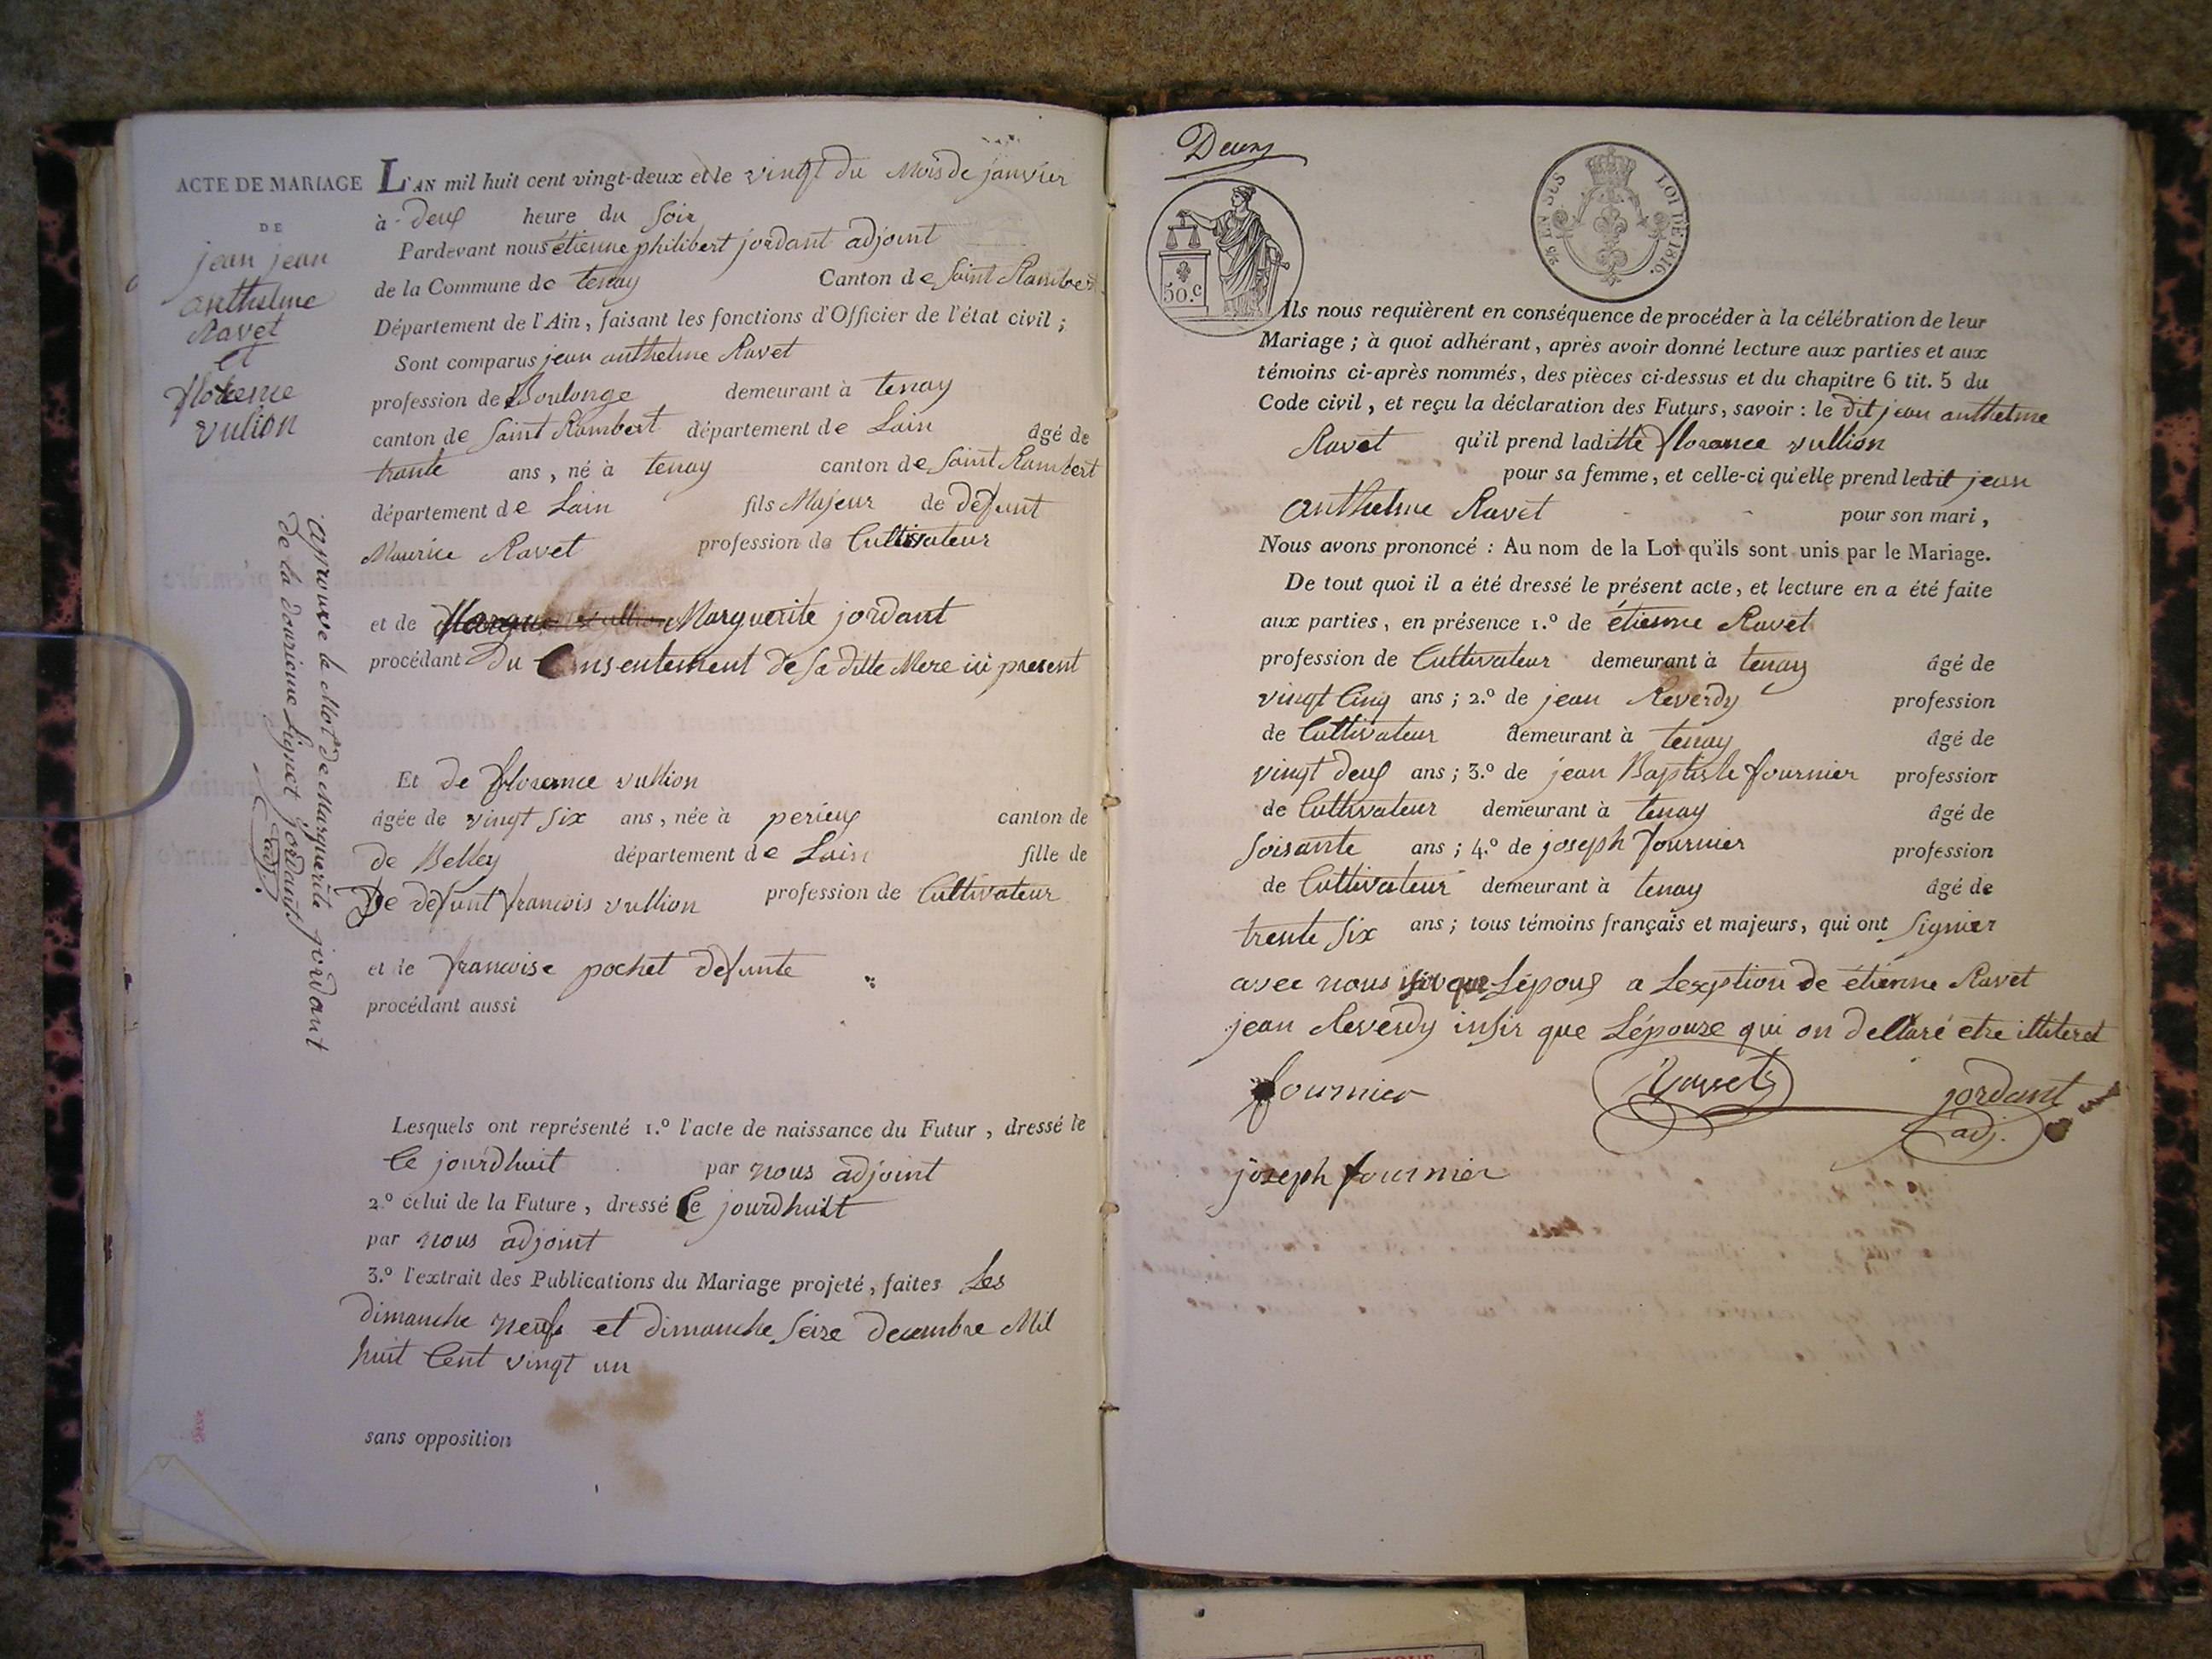 ACTE DE MARIAGE
DE
jean jean
anthelme
Ravet
et
florence
vulion
approuve le Mot de Marguerite jordant
de la douzieme Lignet jordant
adj.
L'AN mil huit cent vingt-deux et le vingt du Mois de janvier
à deux heure du Soir
Pardevant nous étienne philibert jordant adjoint
de la Commune de tenay Canton de Saint Rambert
Département de l'Ain, faisant les fonctions d'Officier de l'état civil ;
Sont comparus jean anthelme Ravet
profession de Boulonge demeurant à tenay
canton de Saint Rambert département de Lain âgé de
trante ans, né à tenay canton de Saint Rambert
département de Lain fils Majeur de defunt
Maurice Ravet profession de Cultivateur
et de Marguerite jordant
procédant du Consentement de sa ditte Mere ici present
Et de florance vullion
âgée de vingt six ans, née à perieux canton de
de Belley département de Lain fille de
De defunt francois vullion profession de Cultivateur
et de francoise pochet defunte
procédant aussi
Lesquels ont représenté 1.º l'acte de naissance du Futur, dressé le
Ce jourdhuit par nous adjoint
2.º celui de la Future, dressé Ce jourdhuit
par nous adjoint
3.º l'extrait des Publications du Mariage projeté, faites Les
dimanche neufs et dimanche Seize decembre Mil
huit Cent vingt un
sans opposition
Deux
50.c
EN SUS
LOI DE 1816.
Ils nous requièrent en conséquence de procéder à la célébration de leur
Mariage ; à quoi adhérant, après avoir donné lecture aux parties et aux
témoins ci-après nommés, des pièces ci-dessus et du chapitre 6 tit. 5 du
Code civil, et reçu la déclaration des Futurs, savoir : le dit jean anthelme
Ravet qu'il prend laditte florance vullion
pour sa femme, et celle-ci qu'elle prend ledit jean
anthelme Ravet pour son mari,
Nous avons prononcé : Au nom de la Loi qu'ils sont unis par le Mariage.
De tout quoi il a été dressé le présent acte, et lecture en a été faite
aux parties, en présence 1.º de étienne Ravet
profession de Cultivateur demeurant à tenay âgé de
vingt Cinq ans ; 2.º de jean Reverdy profession
de Cultivateur demeurant à tenay âgé de
vingt deux ans ; 3.º de jean Baptiste fournier profession
de Cultivateur demeurant à tenay âgé de
soisante ans ; 4.º de joseph fournier profession
de Cultivateur demeurant à tenay âgé de
trente six ans ; tous témoins français et majeurs, qui ont signier
avec nous que Lépoux a Lexption de étienne Ravet
jean Reverdy insir que Lépouze qui on dellaré etre illiteret
fournier
jordant
adj.
joseph fournier